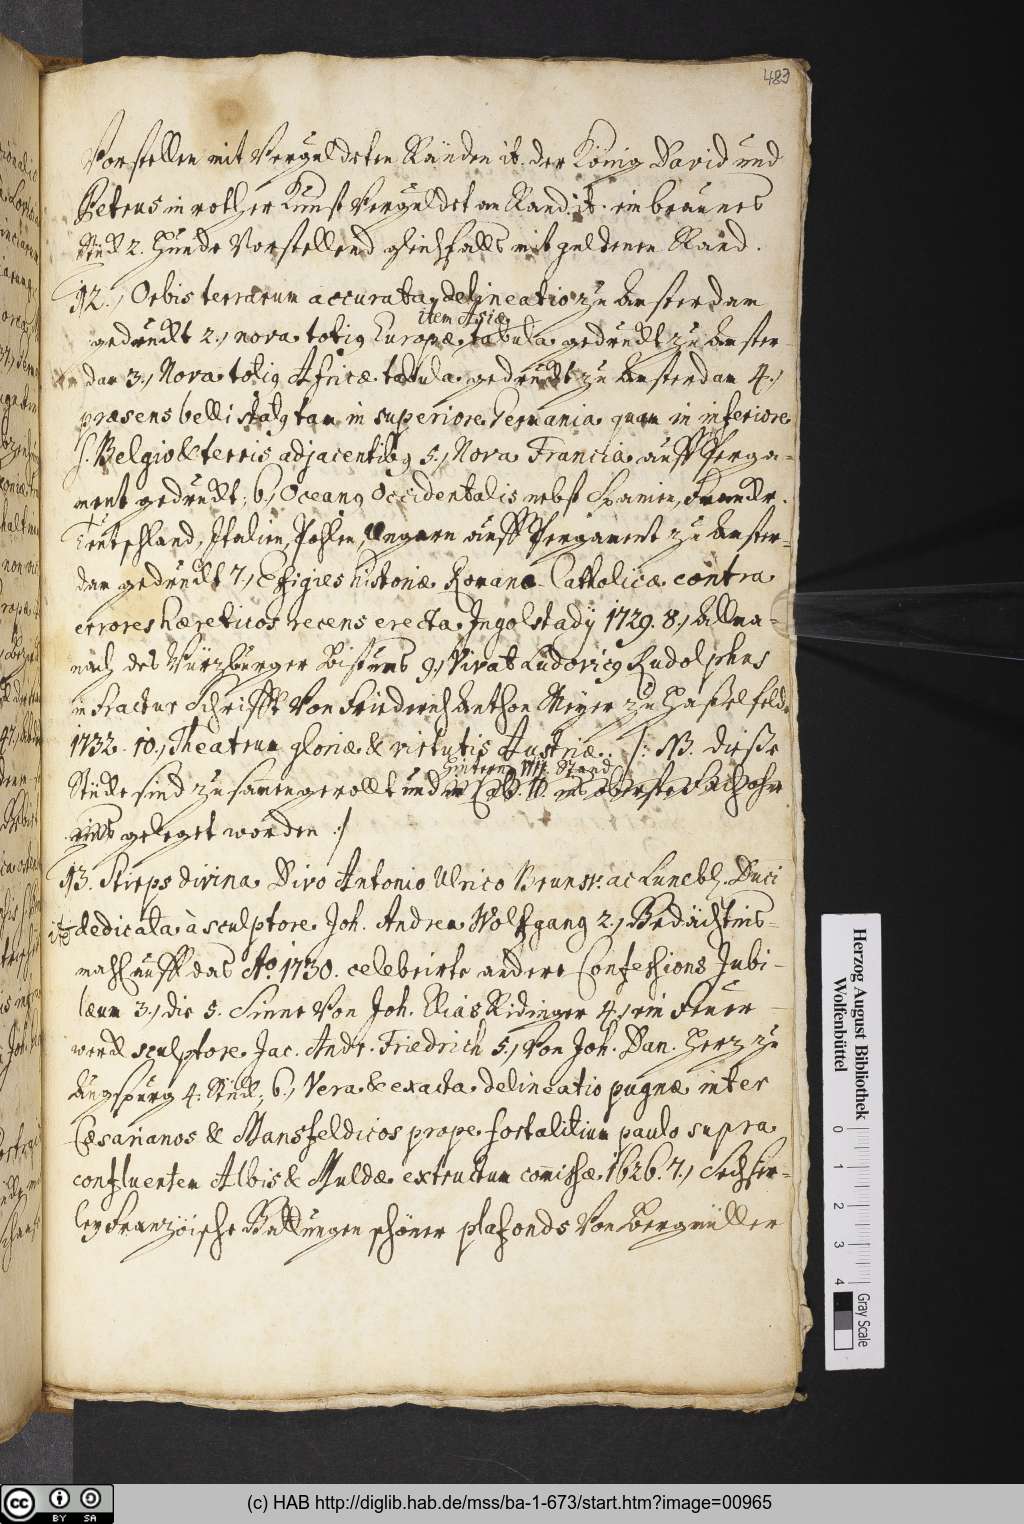 483
Vorstellen mit Verguldeten Ränden it. der König David und
Petrus in rother Kunst Verguldet am Rand. it. ein braunes
Stück 2. Hunde Vorstellend gleichfalls mit guldenen Rand.
92., Orbis terrarum accurata delineatio zu Amsterdam
item Asiæ
gedruckt 2., nova totiq Europæ tabula gedruckt zu Amster-
dam 3., Nova totiq Africæ tabula gedruckt zu Amsterdam 4.,
præsens belli statq tam in superiore Germania quam in inferiore
s. Belgio & terris adjacentibq 5., Nova Francia auff Perga-
ment gedruckt, 6., Oceanq Occidentalis nebst Spanien, Franckr.
Teutschland, Italien, Pohlen, Ungarn auff Pergament zu Amster-
dam gedruckt 7., Effigies historiæ Romanæ Catholicæ contra
errores hæreticos recens erecta Ingolstadÿ 1729. 8., Allma-
nach des Würzburger Bistums 9., Vivat Ludovicq Rudolphus
in Fractur Schrifft Von Friederich Anthon Meyer zu Hasselfelde
1732. 10., Theatrum gloriæ & virtutis Austriæ. /: NB. diese
hintern Stand
Stücke sind zusamengerollt und in oberste Fach
geleget worden :/
93. Stirps divina Divo Antonio Ulrico Brunsv. ac Luneb. Duci
dedicata à sculptore Joh. Andrea Wolfgang 2., Gedächtnis-
mahl auff das Ao. 1730. celebrirte andere Confessions Jubi-
læum 3., die 5. Sinne Von Joh. Elias Ridinger 4., ein Feuer-
werck sculptore Jac. Andr. Friedrich 5., Von Joh. Dan. Herz zu
Augspurg 4. Stück, 6., Vera & exacta delineatio pugnæ inter
Cæsarianos & Mansfeldicos prope fortalitium paulo supra
confluentem Albis & Muldæ extructum comissæ 1626. 7., Sechser-
ley Französche Gattungen schöner plafonds Von Bergmüller
Herzog August Bibliothek
Wolfenbüttel
0 1 2 3 4
Gray Scale
cc BY SA
(c) HAB http://diglib.hab.de/mss/ba-1-673/start.htm?image=00965